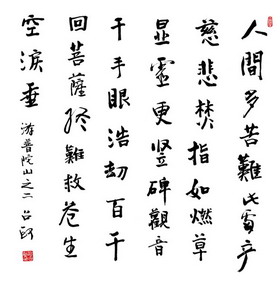 人間多苦難此處产
慈悲焚指如燃草
显靈更竪碑觀音
千手眼浩劫百千
回菩薩終難救苍生
空淚垂
游普陀山之二